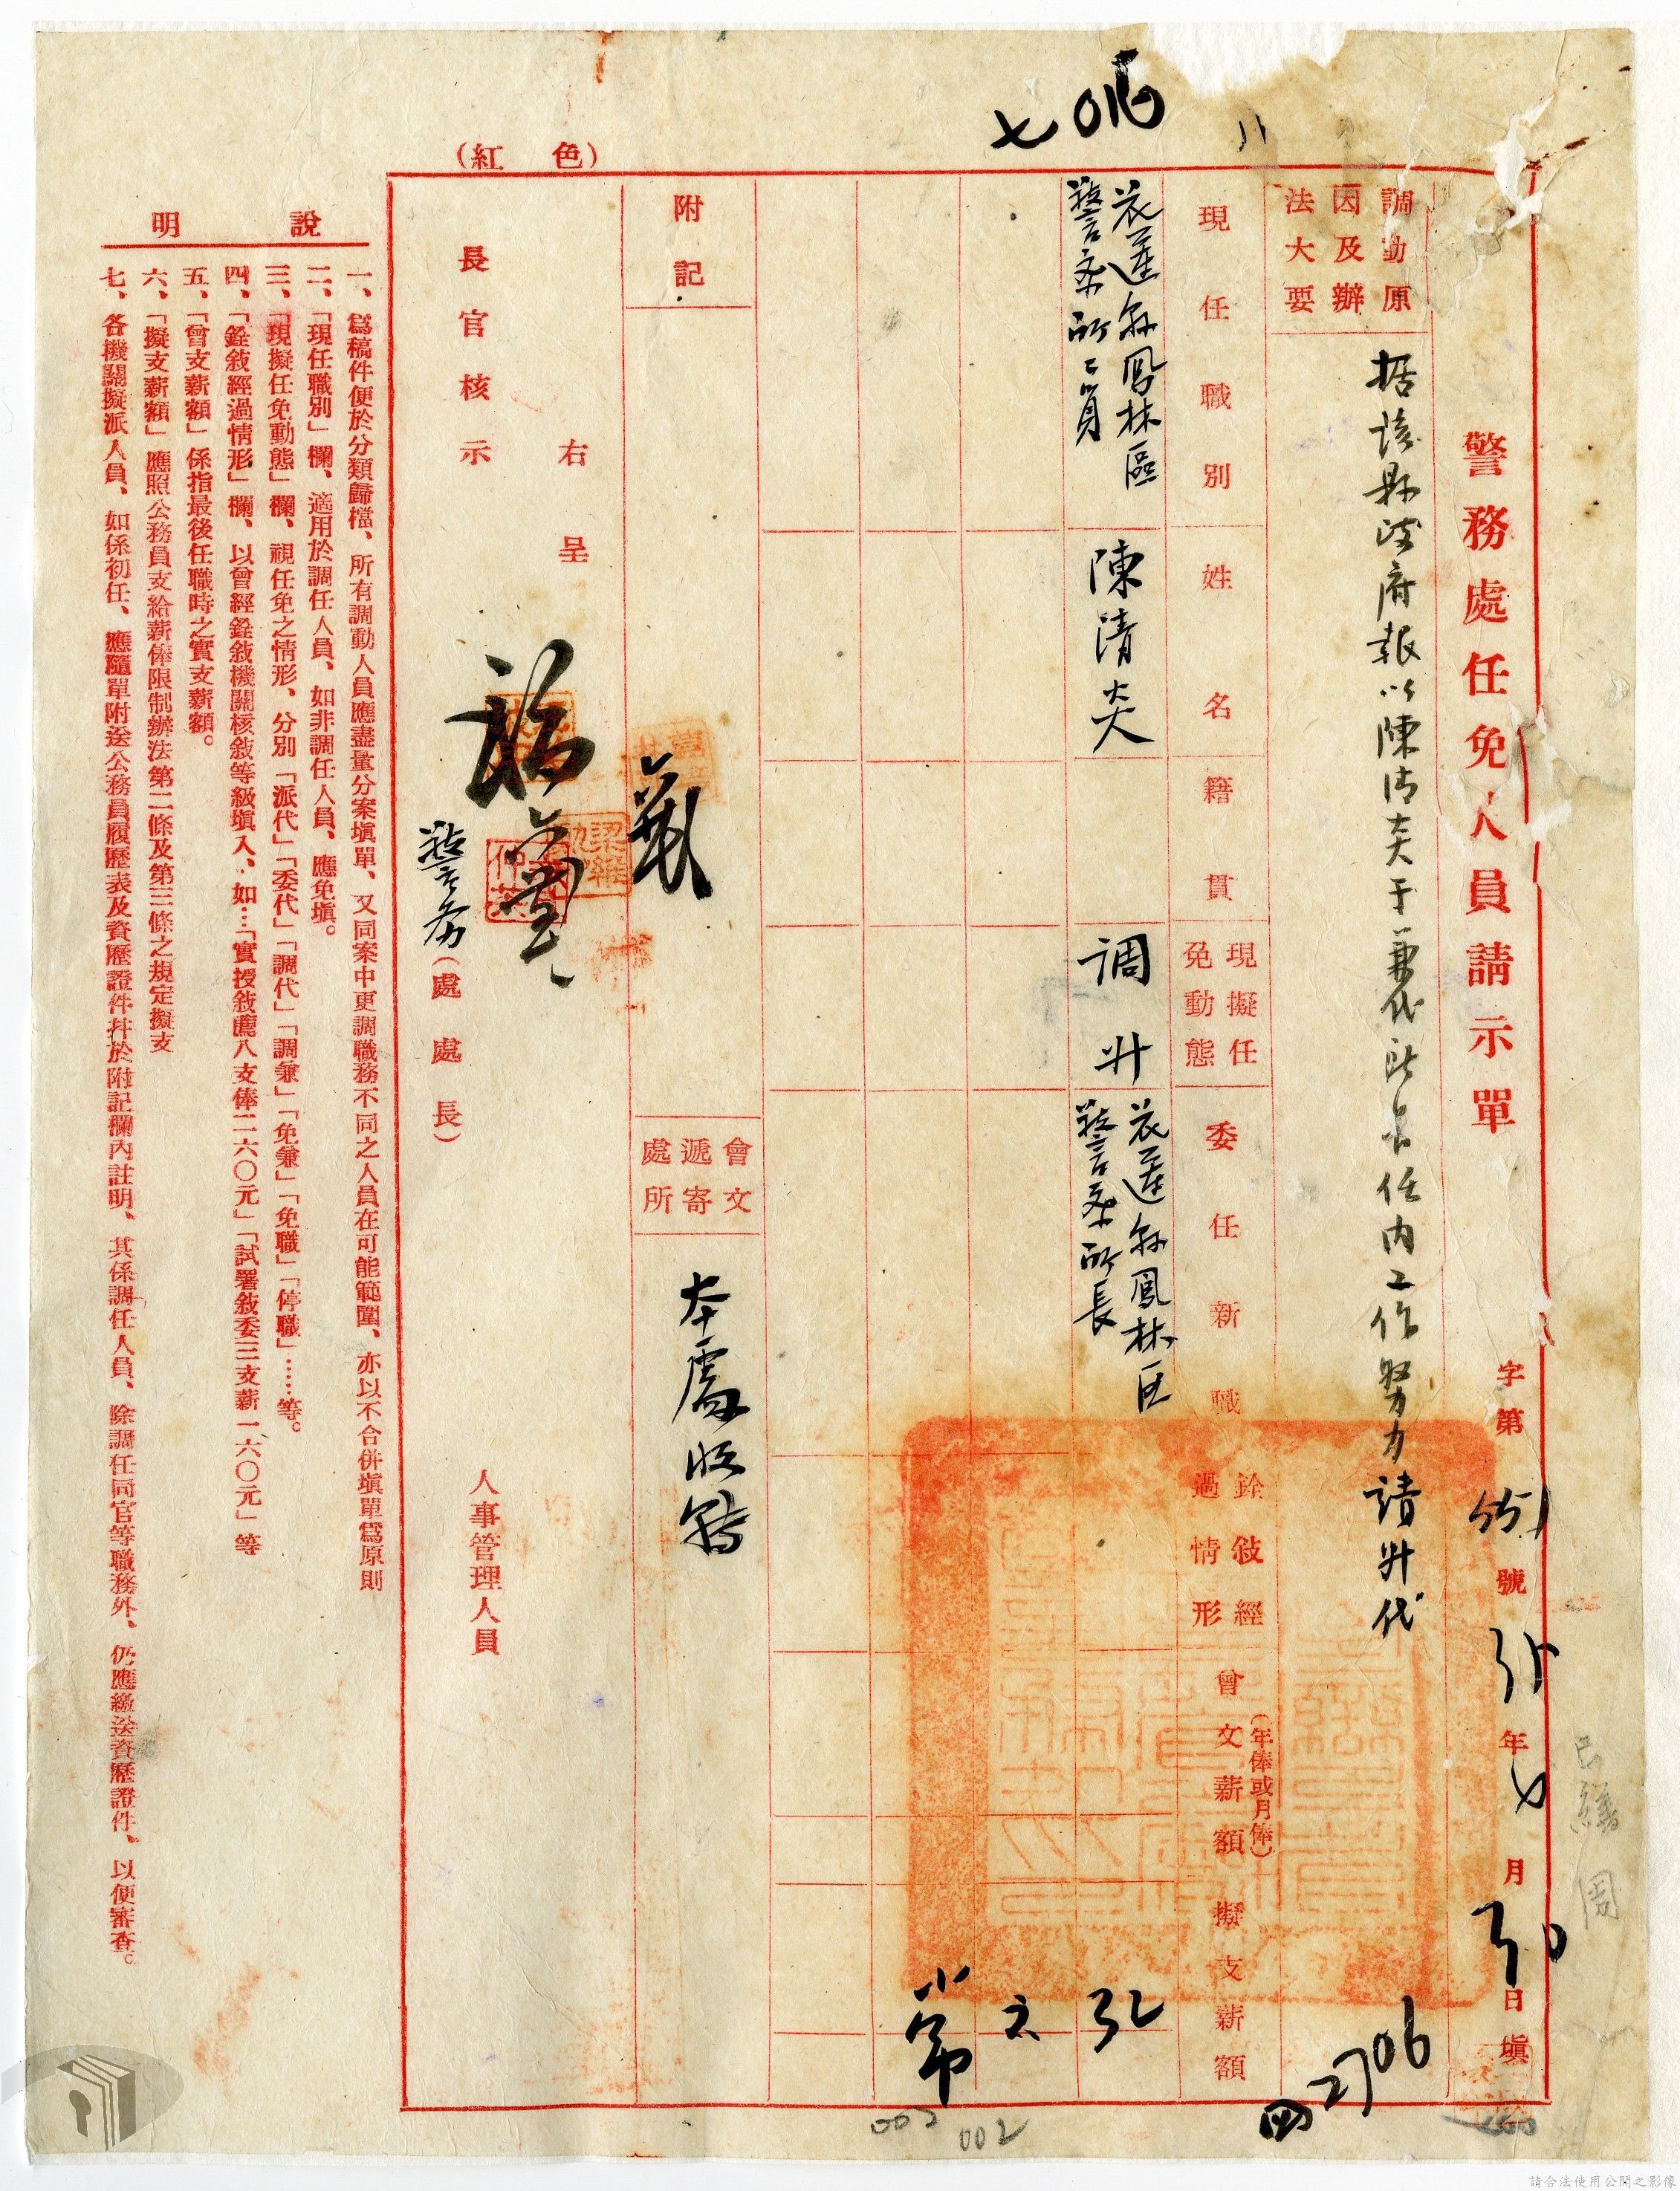 警務處任免人員請示單
字第 號 35年 月30日填
調動原因及辦法大要
据該縣政府報以陳清炎于兼代所長任內工作努力請升代
現任職別
姓名
籍貫
現擬任免動態
委任新職
銓敍經過情形
曾支薪額(年俸或月俸)
擬支薪額
花蓮縣鳳林區警察所所員
陳清炎
調升
花蓮縣鳳林区警察所長
附記
會文遞寄處所
本處收轉
右呈
長官核示
警务(處處長)
人事管理人員
(紅色)
說明
一、爲稿件便於分類歸檔、所有調動人員應盡量分案塡單、又同案中更調職務不同之人員在可能範圍、亦以不合併塡單爲原則
二、「現任職別」欄、適用於調任人員、如非調任人員、應免塡。
三、「現擬任免動態」欄、視任免之情形、分別「派代」「委代」「調代」「調兼」「免兼」「免職」「停職」……等。
四、「銓敍經過情形」欄、以曾經銓敍機關核敍等級塡入、如…「實授敍薦八支俸二六〇元」「試署敍委三支薪一六〇元」等
五、「曾支薪額」係指最後任職時之實支薪額。
六、「擬支薪額」應照公務員支給薪俸限制辦法第二條及第三條之規定擬支
七、各機關擬派人員、如係初任、應隨單附送公務員履歷表及資歷證件并於附記欄內註明、其係調任人員、除調任同官等職務外、仍應繳送資歷證件、以便審查。
002
002
請合法使用公開之影像